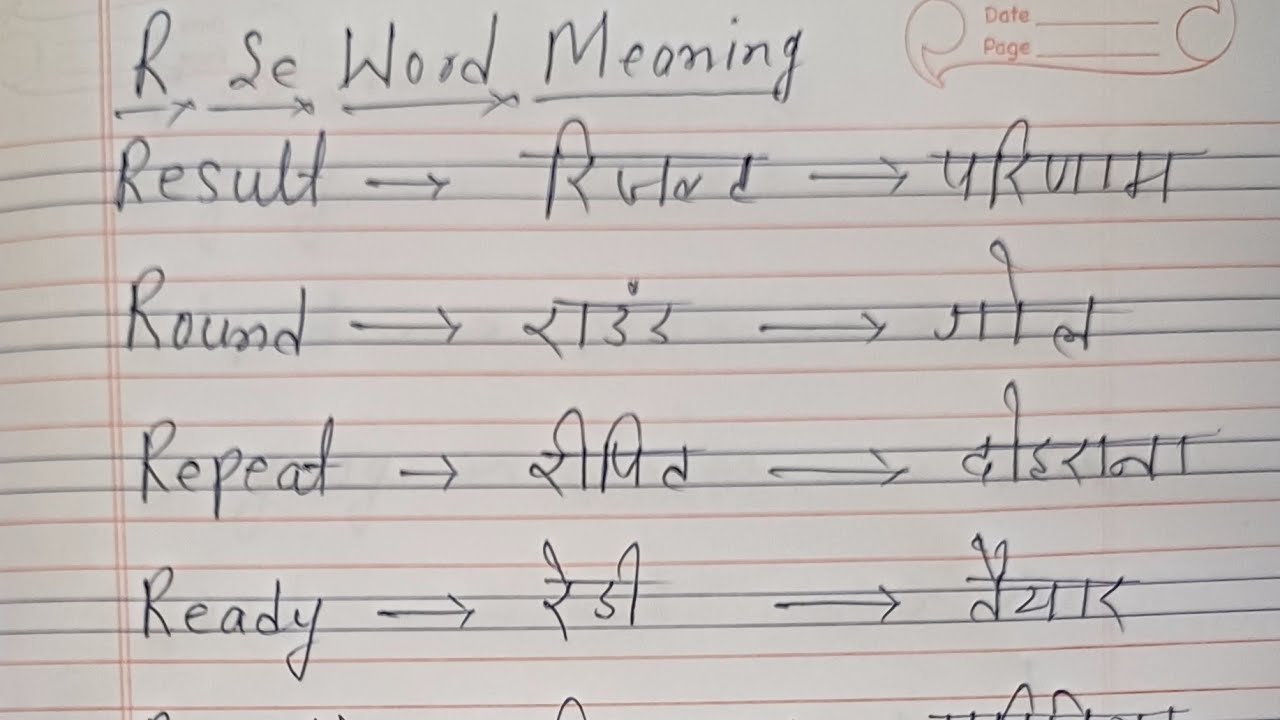 Date
Page
R Se Word Meaning
Result → रिजल्ट → परिणाम
Round → राउंड → गोल
Repeat → रीपिट → दोहराना
Ready → रेडी → तैयार